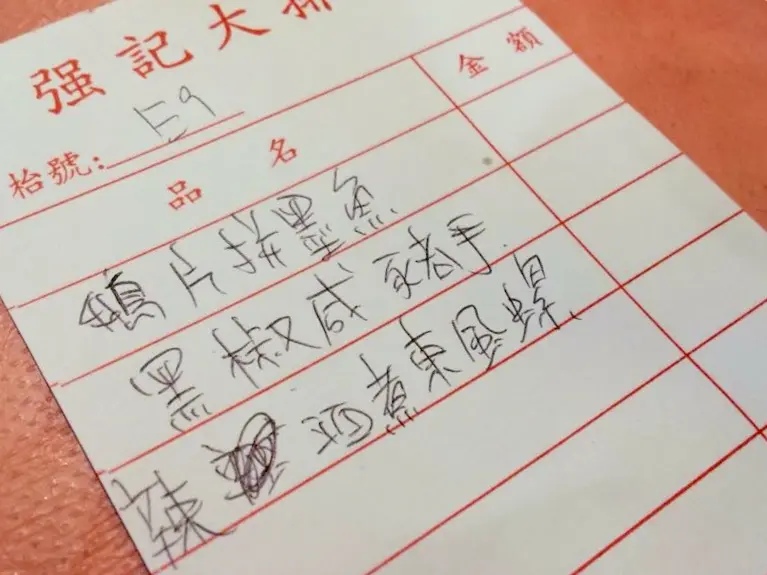 强記大
枱號: E9
品名 金額
鵝片拼墨魚
黑椒咸豬手
辣酒煮東風螺